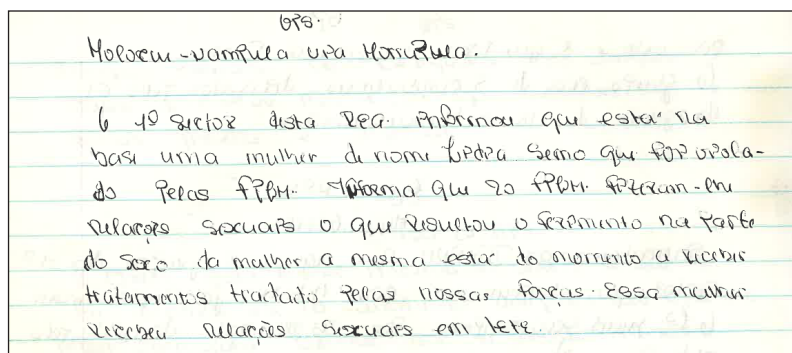 OPS.
Molocue-Nampula via Morrupula.
O 1º sector desta REG. informou que está na
base uma mulher de nome Lidia Semo que foi viola-
do pelas FPLM. Informa que 20 FPLM. fizeram-em
relações sexuais o que resultou o ferimento na parte
do sexo da mulher a mesma está do momento a receber
tratamentos tractado pelas nossas forças. Essa mulher
recebeu relações sexuais em tete.